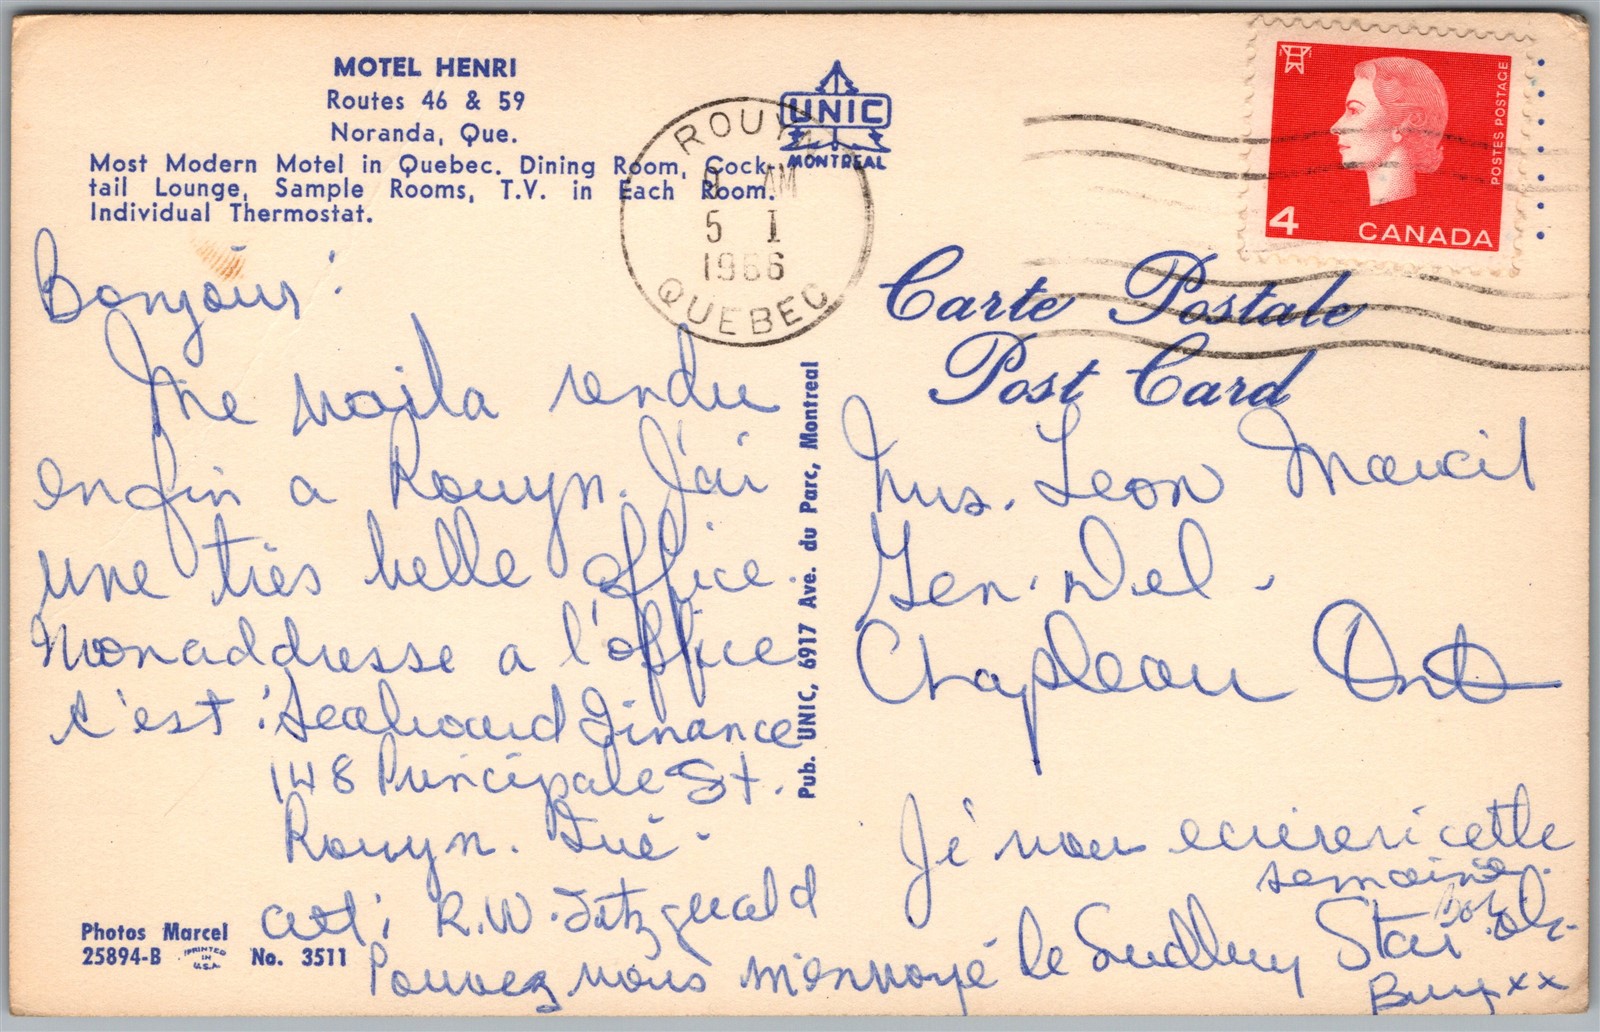 MOTEL HENRI
Routes 46 & 59
Noranda, Que.
Most Modern Motel in Quebec. Dining Room, Cock-
tail Lounge, Sample Rooms, T.V. in Each Room.
Individual Thermostat.
UNIC
MONTREAL
ROUYN
AM
5 I
1966
QUEBEC
POSTES POSTAGE
4 CANADA
Carte Postale
Post Card
Bonjour!
Me voila rendu
enfin a Rouyn. J'ai
une très belle office.
Mon addresse a l'office
c'est: Seaboard Finance
148 Principale St.
Rouyn. Qué.
att: R.W. Fitzgerald
Pouvez vous m'envoyé le Sudbury Star
Pub. UNIC, 6917 Ave. du Parc, Montreal
Mrs. Leon Marcil
Gen. Del.
Chapleau Ont
Je vous ecrirerri cette
semaine.
xx
Photos Marcel
25894-B PRINTED IN U.S.A. No. 3511